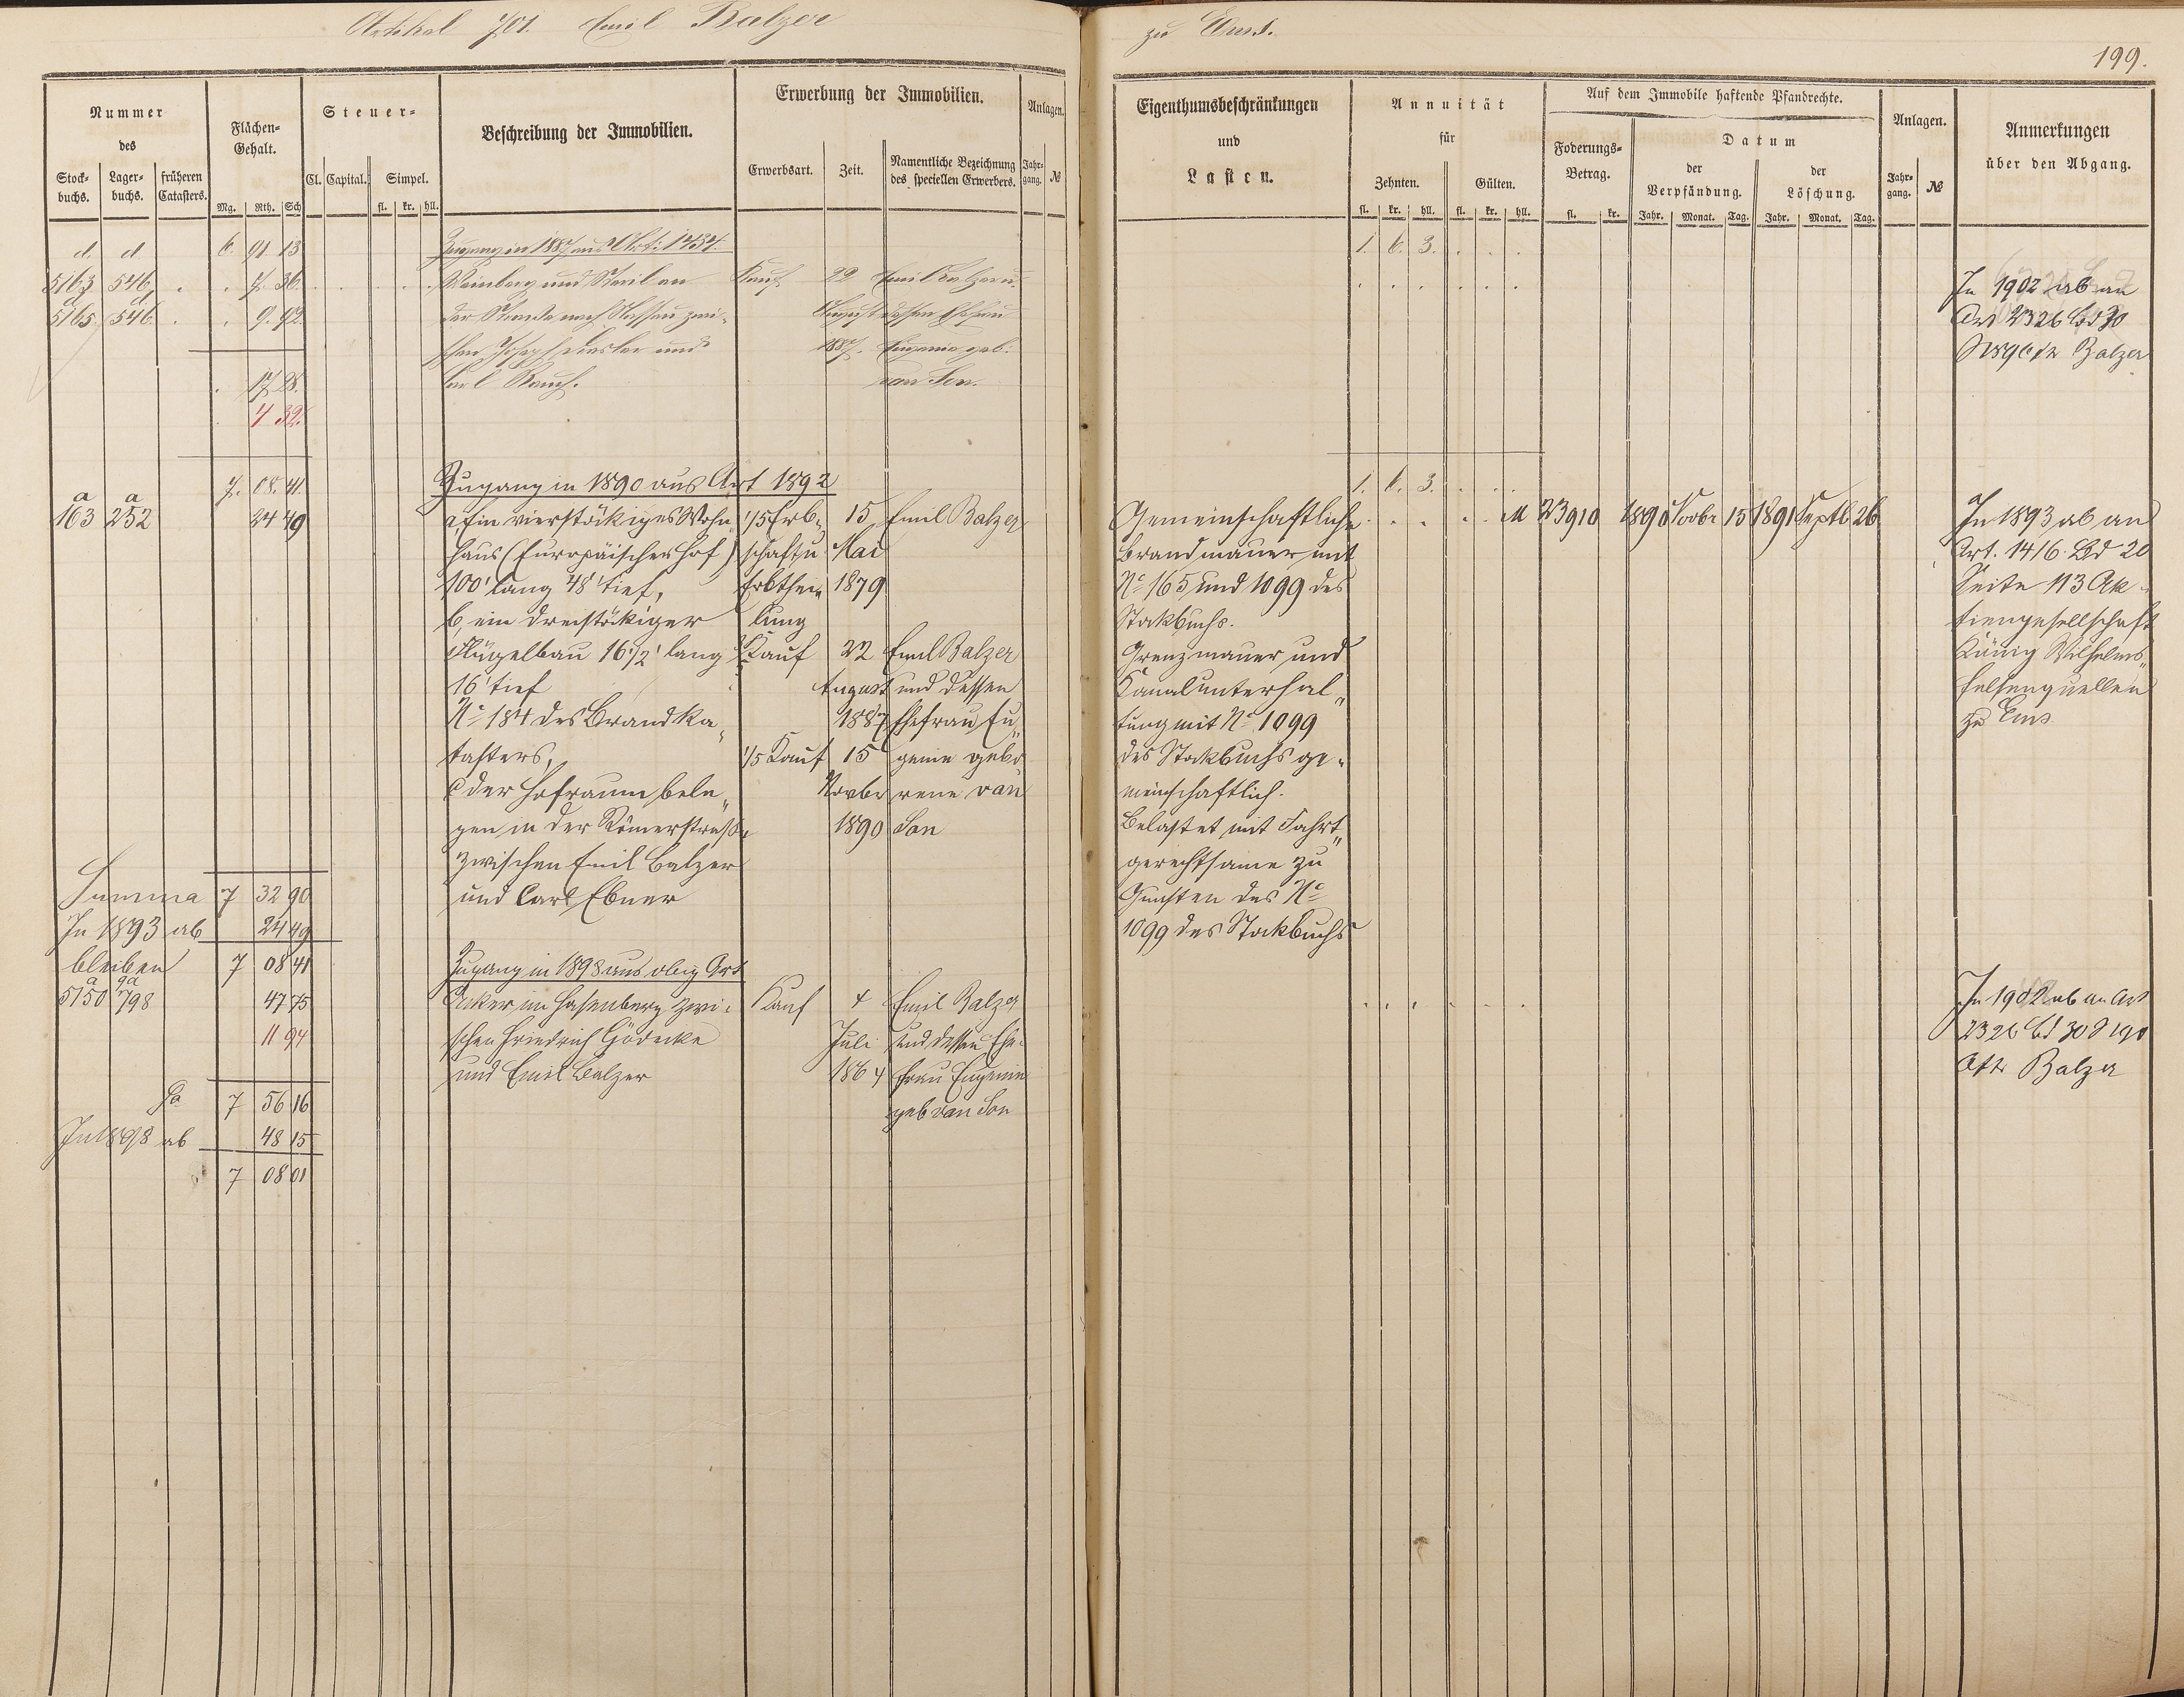 Artikel 701. Emil Balzer
zu Ems.
199.
Nummer
des
Stock-
buchs.
Lager-
buchs.
früheren
Catasters.
Flächen-
Gehalt.
Mg. Rth. Sch
Steuer-
Cl. Capital. Simpel.
fl. kr. hll.
Beschreibung der Immobilien.
Erwerbung der Immobilien.
Erwerbsart. Zeit.
Namentliche Bezeichnung
des speciellen Erwerbers.
Anlagen.
Jahr-
gang. №
Eigenthumsbeschränkungen
und
Lasten.
Annuität
für
Zehnten. Gülten.
fl. kr. hll. fl. kr. hll.
Auf dem Immobile haftende Pfandrechte.
Foderungs-
Betrag.
fl. kr.
Datum
der
Verpfändung.
der
Löschung.
Jahr. Monat. Tag. Jahr. Monat. Tag.
Anlagen.
Jahr-
gang. №
Anmerkungen
über den Abgang.
d. d 6. 91 13 Zugang in 1887 aus Art: 1737.
5163 546 7. 36. Weinberg und Steil an Kauf 22 Emil Balzer u.
d d
5165 546 9. 92. der Straße nach Nassau zwi- August dessen Ehefrau
schen Joseph und 1887. Eugenie geb:
17 28. Carl Rauch. van Son.
4 39.
1. 6. 3.
In 1902 ab an
Art 2326 Bd 30
S 190 Balzer
7. 08. 41. Zugang in 1890 aus Art 1892
1. 6. 3.
a a
163 252 24 49 a, Ein vierstöckiges Wohn- 1/5 Erb- 15 Emil Balzer
haus (Europäischer Hof) schaft u Mai
100' lang 48' tief, Erbthei- 1879
b, ein dreistöckiger lung
Flügelbau 16 1/2' lang Kauf 22 Emil Balzer
16' tief August und dessen
No 184 des Brandka- 1887 Ehefrau Eu-
tasters, 1/5 Kauf 15 genie gebo-
c der Hofraum bele- Novbr rene van
gen in der Römerstraße 1890 Son
zwischen Emil Balzer
und Carl Ebner
Gemeinschaftliche M 23910 1890 Novbr 15 1891 Septb 26
Brandmauer mit
No 165 und 1099 des
Stockbuchs.
Grenzmauer und
Kanalunterhal-
tung mit No 1099
des Stockbuchs ge-
meinschaftlich.
Belastet mit Fahrt-
gerechtsame zu
Gunsten des No
1099 des Stockbuchs
In 1893 ab an
Art. 1416. Bd 20
Seite 113 Ak-
tiengesellschaft
König Wilhelms-
felsenquellen
zu Ems
Summa 7 32 90
In 1893 ab 24 49
bleiben 7 08 41 Zugang in 1898 aus obig Art
a ga
5150 798 47 75 Acker im Hasenberg zwi- Kauf 4 Emil Balzer
11 94 schen Friedrich Gödecke Juli und dessen Ehe-
und Emil Balzer 1864 frau Eugenie
geb van Son
Sa 7 56 16
In 1898 ab 48 15
7 08 01
In 1902 ab an Art
2326 Bd 30 S 190
Balzer